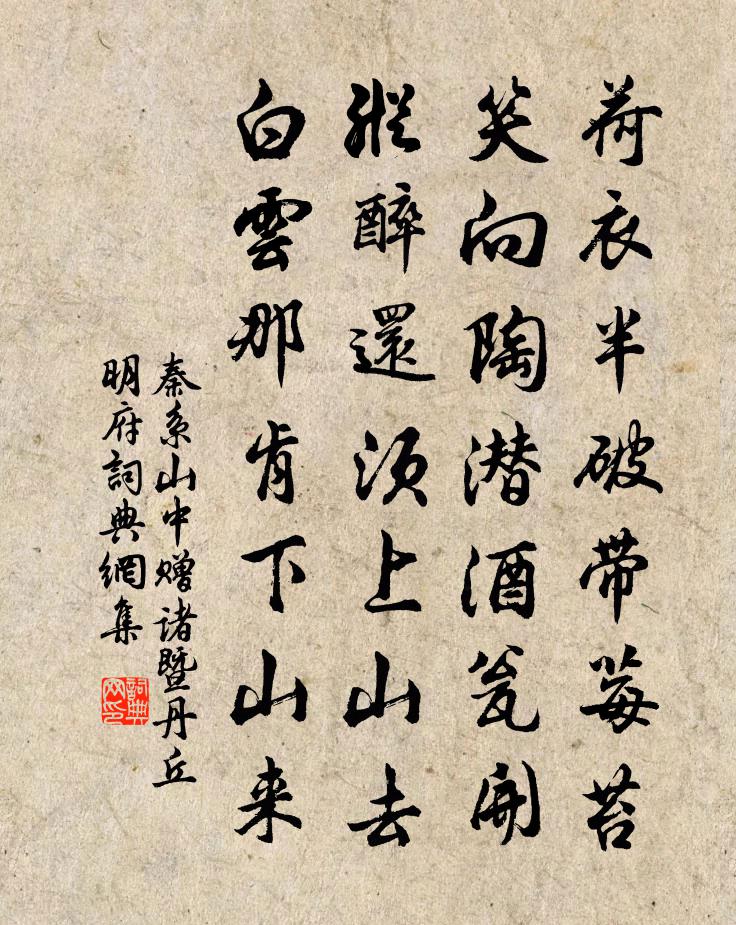 荷衣半破带莓苔
笑向陶潜酒瓮開
縱醉還須上山去
白雲那肯下山来
秦系山中赠诸暨丹丘
明府詞典網集
詞典
网印